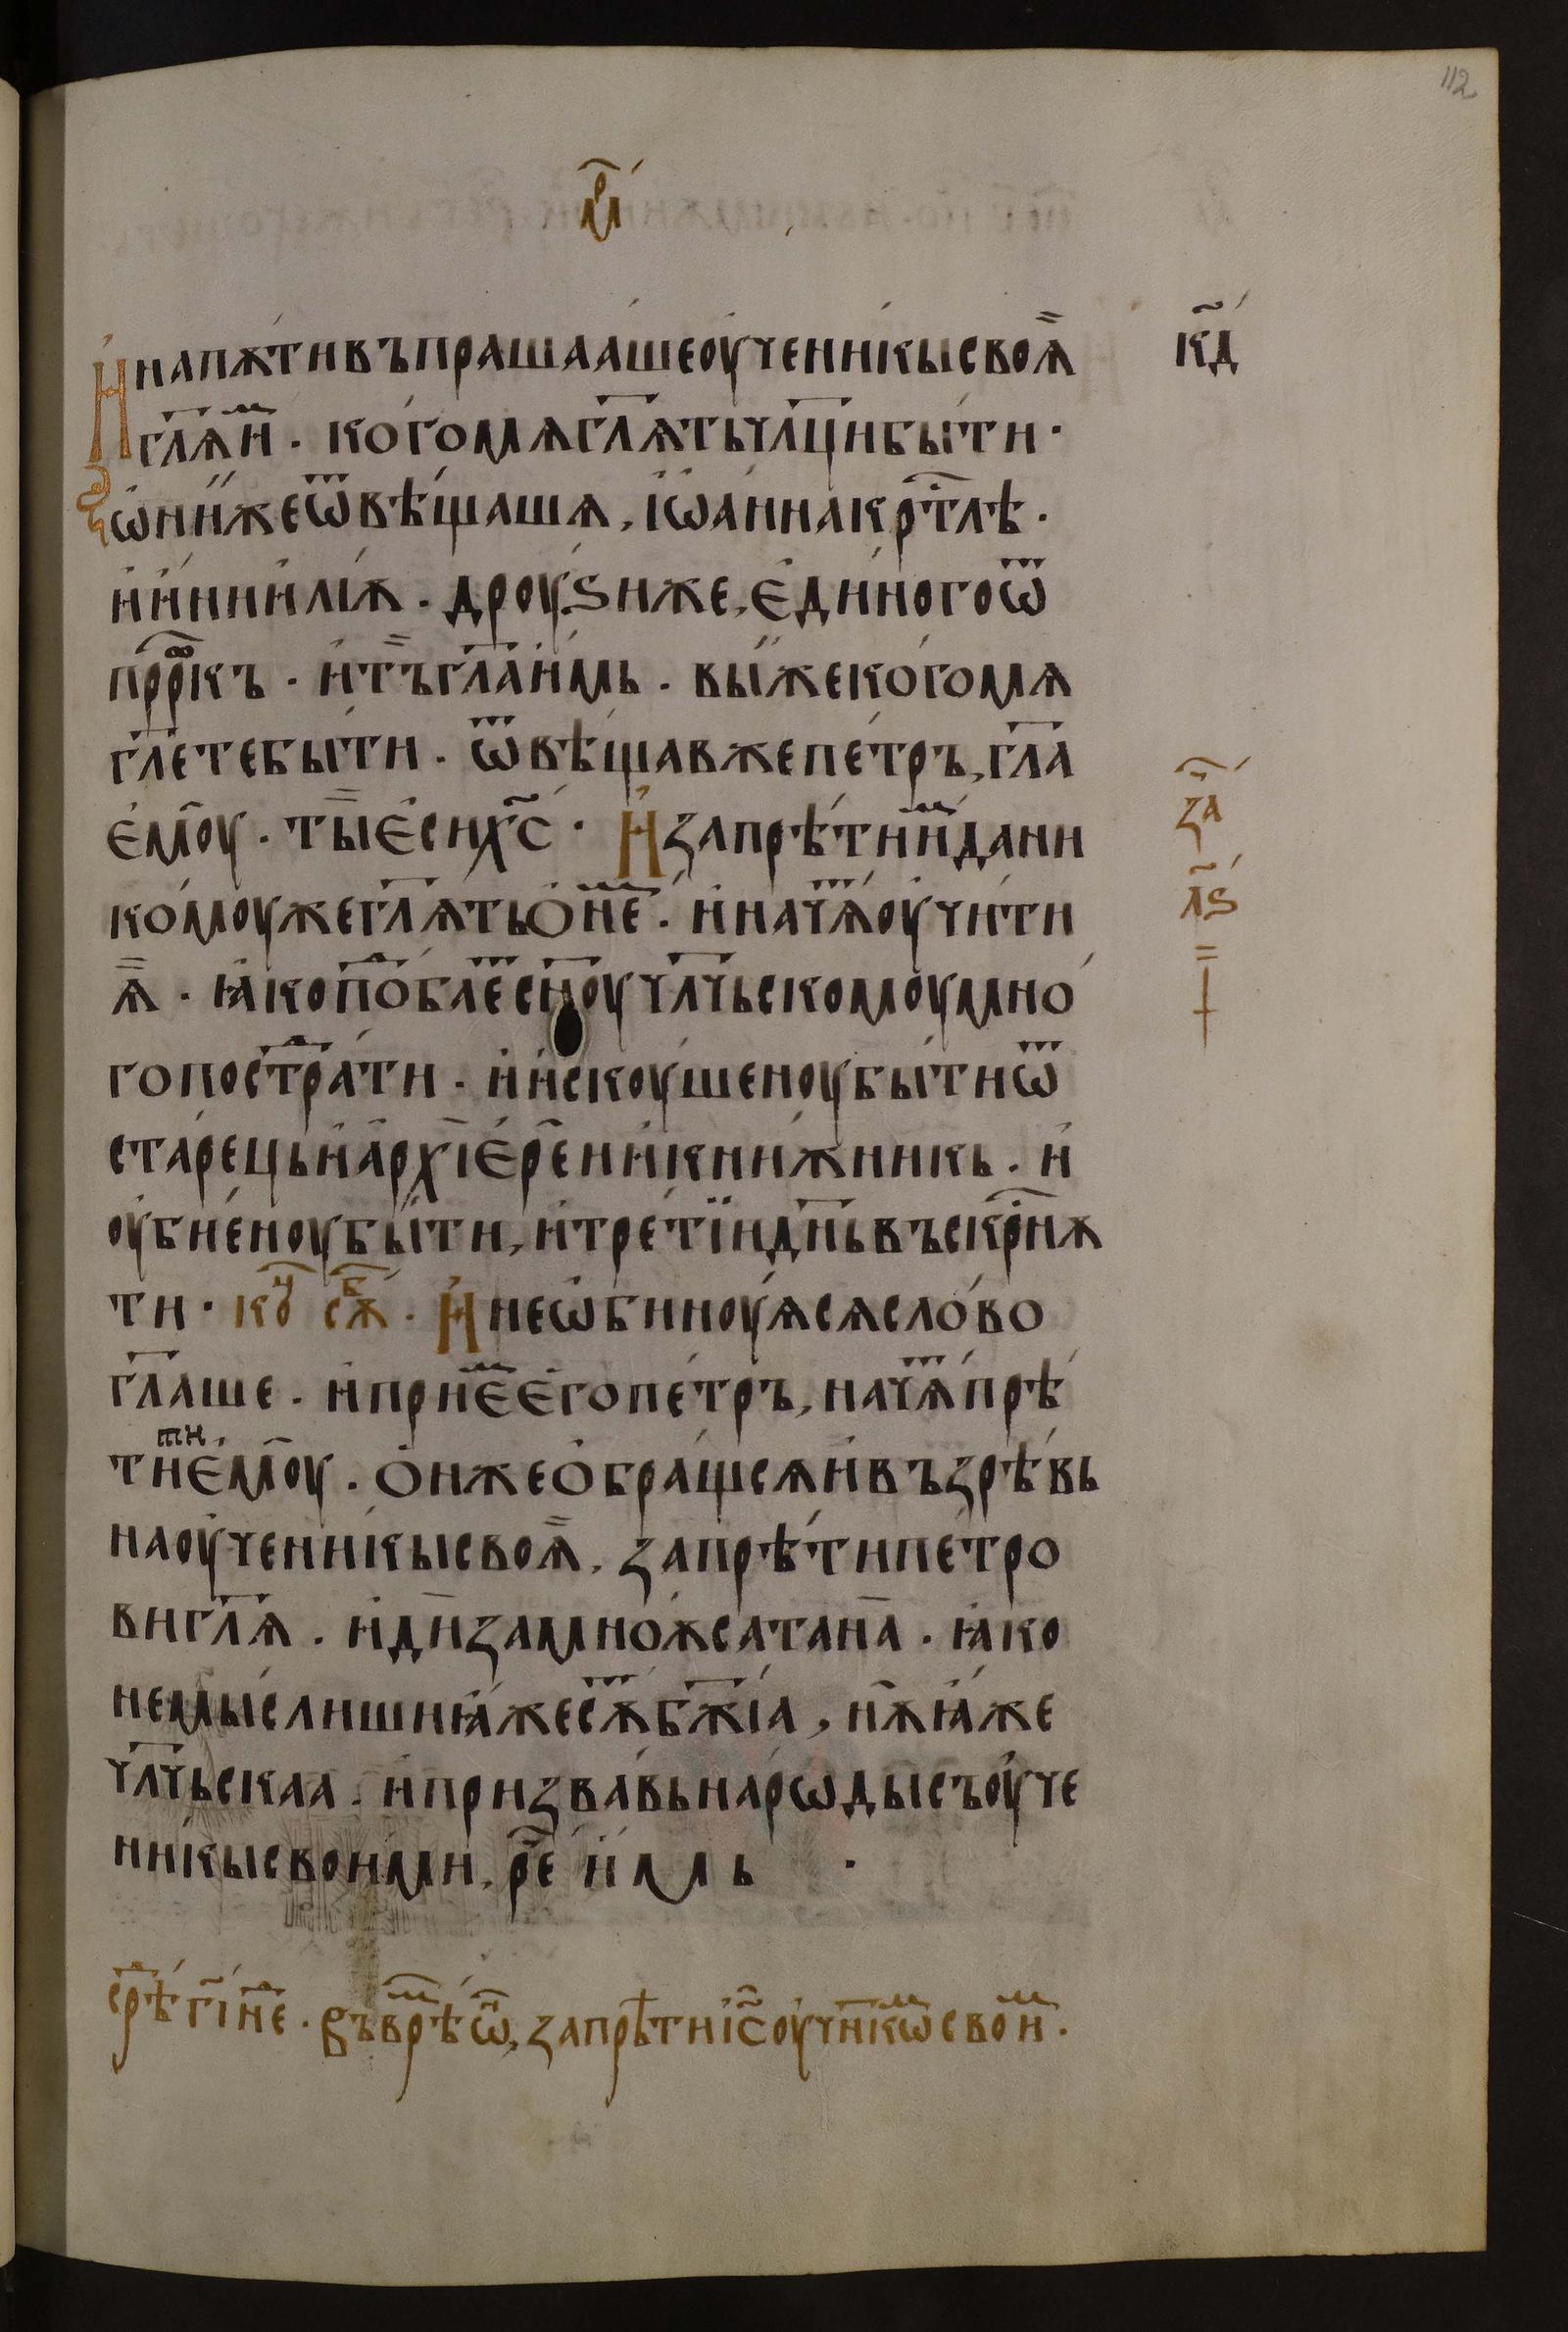 112
мр҃
И҆ на пѫти въпрашааше оу҆ченикы своѧ҆
гл҃ѧ и҆м . кого мѧ гл҃ѫть чл҃ци бы́ти ·
ѡ҆ни́ же ѿвѣщашѧ , і҆ѡа́нна крⷭ҇тлѣ .
и҆ и҆ни и҆лїѫ . дроуѕи же , є҆ди́ного ѿ
прⷪ҇ркъ . и҆ тъ гл҃а и҆мь . вы́ же ко́го мѧ
гл҃ете бы́ти . ѿвѣщав же петръ , гл҃а
є҆моу . ты є҆си хс҃ · И҆ запрѣти и҆м да ни
комоу же гл҃ѧть ѻ҆ не́мь . и҆ начѧⷮ оу҆чи́ти
ѧ҆ . ꙗ҆ко поⷣбаеⷮ сн҃оу чл҃чьскомоу мно
го постраⷣти . и҆ и҆скоушеноу бы́ти ѿ
старець и҆ архїє҆реи и҆ книжникь . и҆
оу҆биеноу бы́ти , и҆ третїи дн҃ь въскрⷭ҇нѫ
ти · коⷰ҇ сѫⷠ҇ . И҆ не ѡ҆биноуѧ сѧ сло́во
гл҃аше . и҆ прие́мь є҆го петръ , начѧⷮ прѣ
тиⷮи є҆моу . ѻ҆н же ѻ҆бра́щь сѧ и҆ възрѣвь
на оу҆ченикы своѧ҆ , запрѣти петро
ви гл҃ѧ . и҆ди за мноѫ сатана . ꙗ҆ко
не мыслиши ꙗ҆же сѫⷮ бж҃їа , нѫ ꙗ҆же
чл҃чьскаа . и҆ призвавь нарѡды съ оу҆че
никы своими , реⷱ҇ и҆мь .
среⷣ г҃і неⷣ . въ врѣⷨ ѡ҆н , запрѣти і҆с҃ оу҆чн҃кѡⷨ своиⷨ .
кд҃
заⷱ҇
лѕ҃